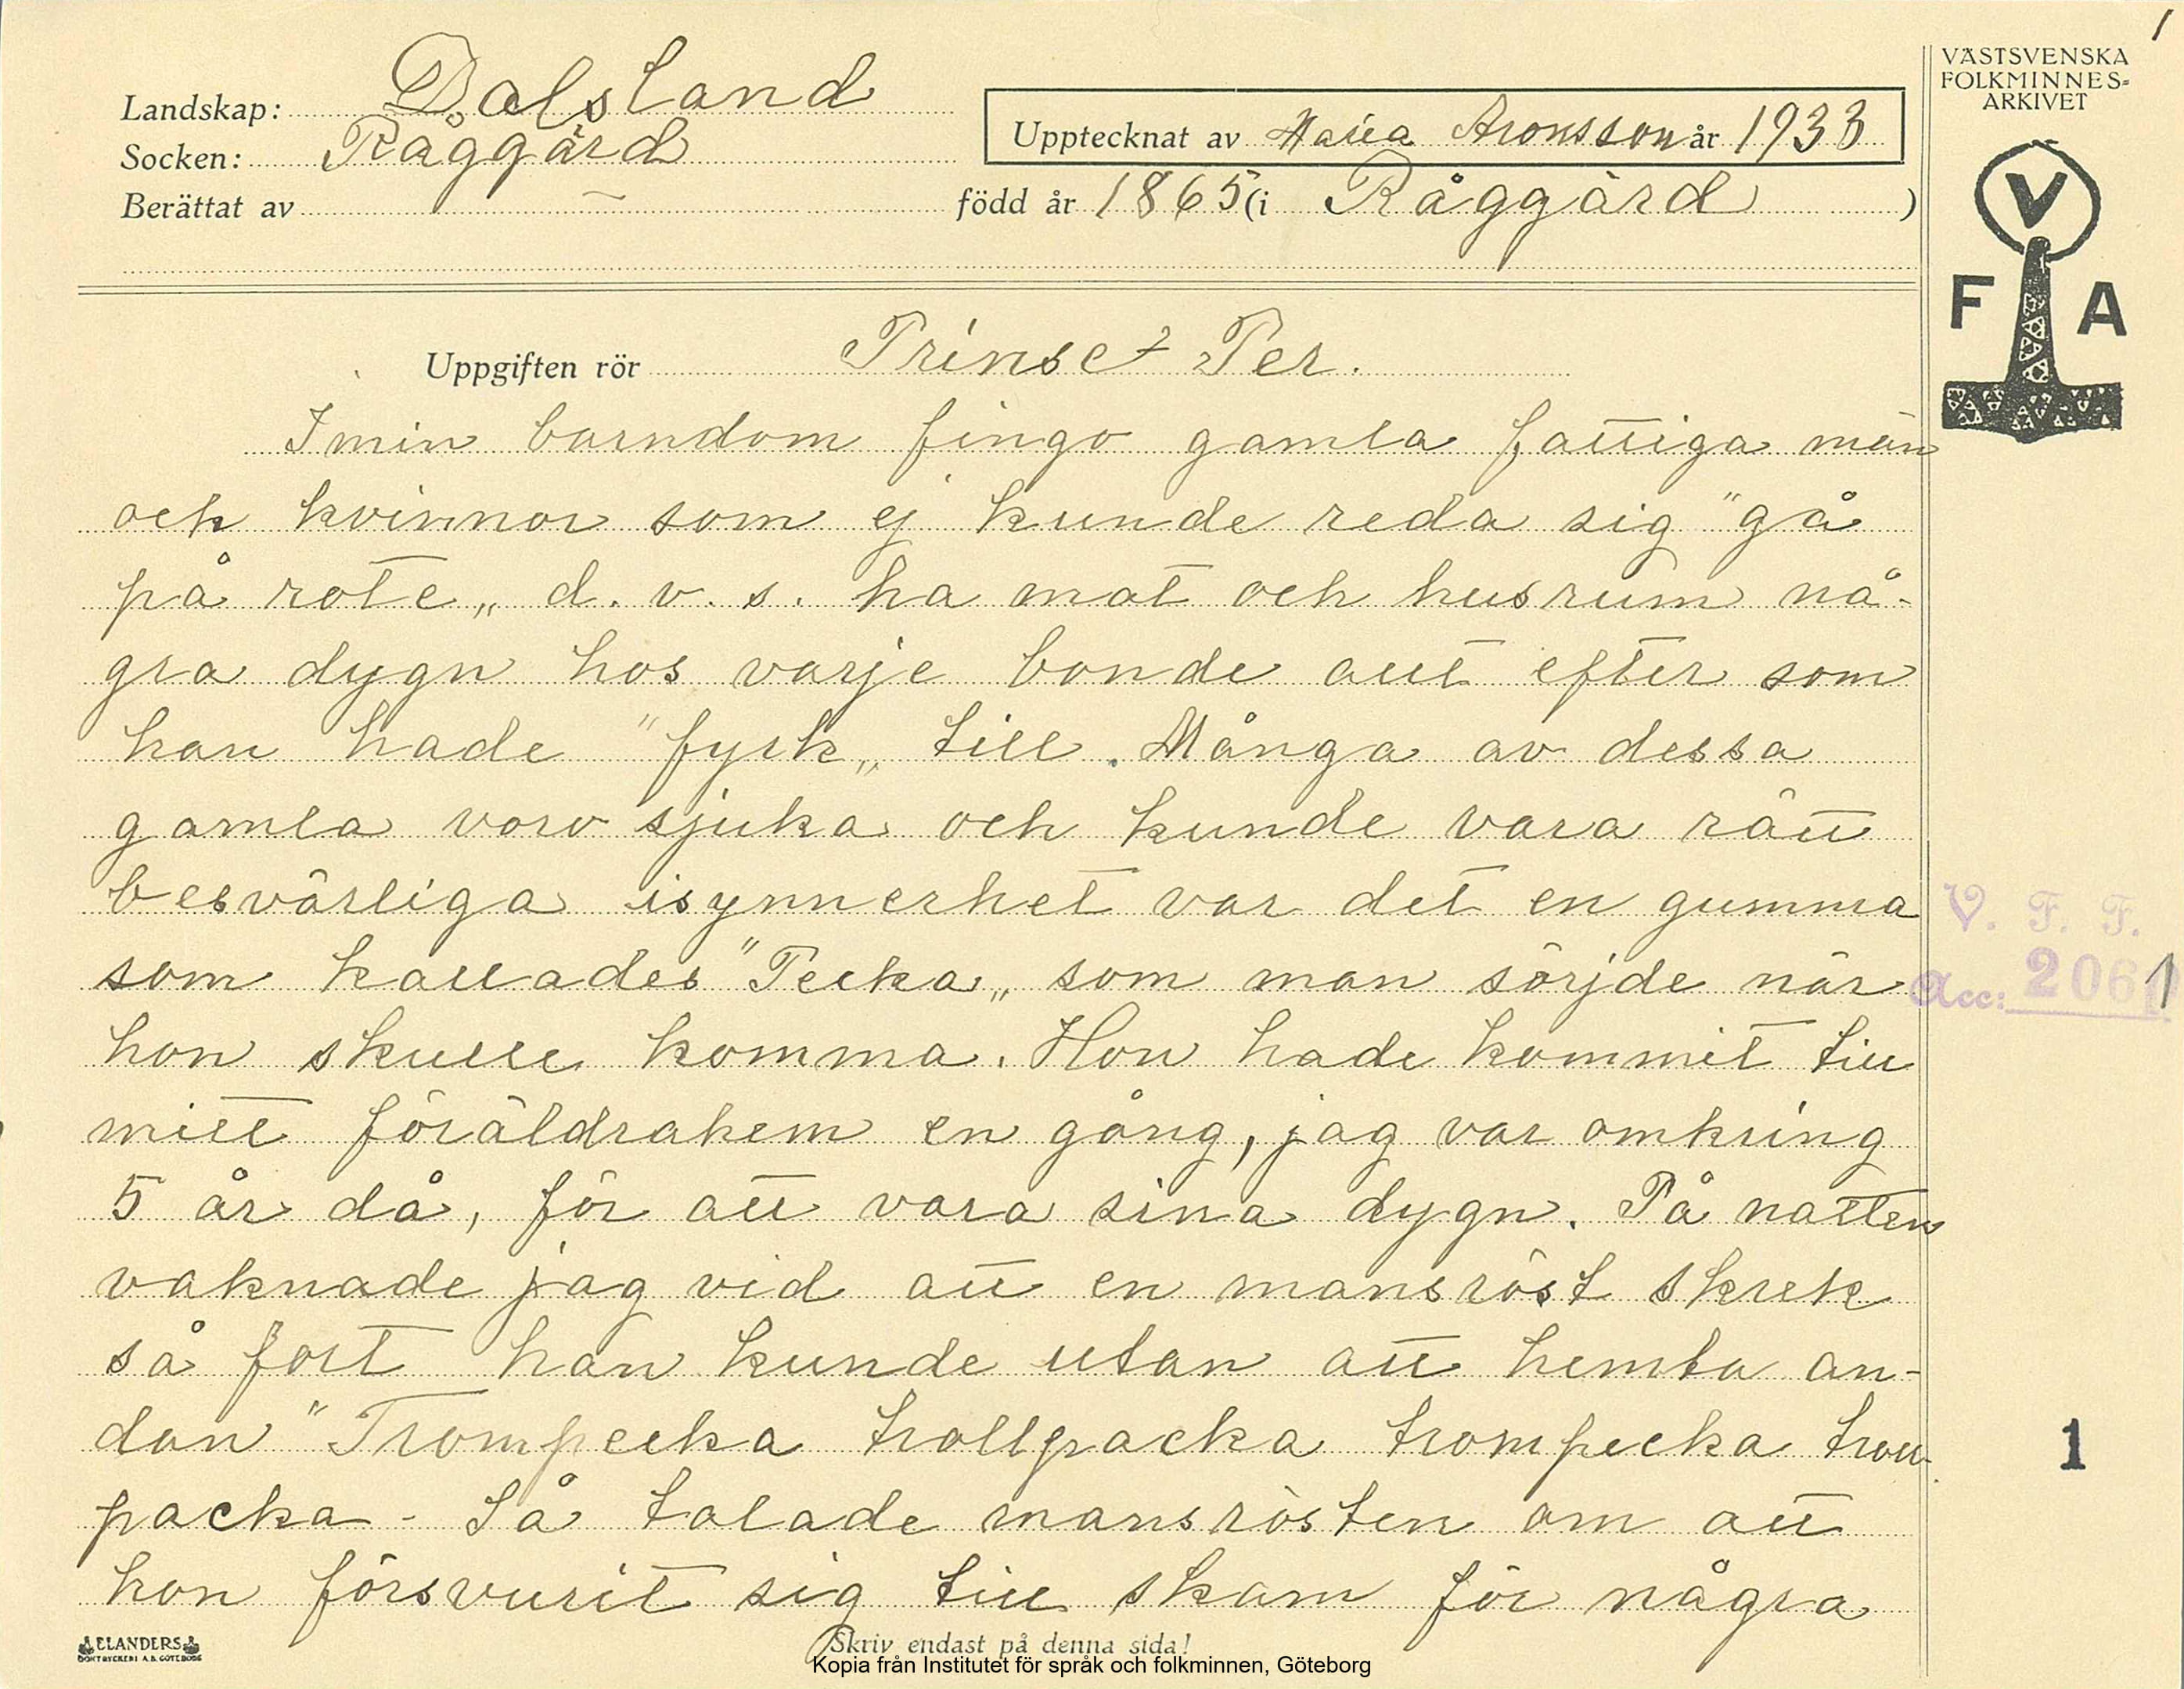 1
VÄSTSVENSKA
FOLKMINNES-
ARKIVET
Landskap: Dalsland
Socken: Råggärd
Upptecknat av Maria Aronsson år 1933
Berättat av — född år 1865 (i Råggärd )
V
F A
Uppgiften rör Prinset Per.
I min barndom fingo gamla fattiga män
och kvinnor som ej kunde reda sig "gå
på rote„ d. v. s. ha mat och husrum nå-
gra dygn hos varje bonde allt efter som
han hade "fyrk„ till. Många av dessa
gamla voro sjuka och kunde vara rätt
besvärliga isynnerhet var det en gumma
som kallades "Pecka„ som man sörjde när
hon skulle komma. Hon hade kommit till
mitt föräldrahem en gång, jag var omkring
5 år då, för att vara sina dygn. På natten
vaknade jag vid att en mansröst skrek
så fort han kunde utan att hemta an-
dan "Trompecka trollpacka trompecka troll-
packa - Så talade mansrösten om att
hon försvurit sig till skam för några
V. F. F.
Acc: 2061
1
ELANDERS
BOKTRYCKERI A.B. GÖTEBORG
Skriv endast på denna sida!
Kopia från Institutet för språk och folkminnen, Göteborg